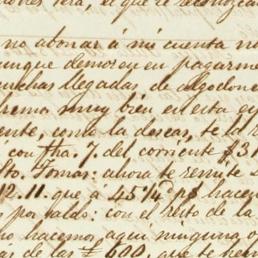 verá, el que te reconozca
no abonar á mi cuenta no
unque demoren en pagarme
muchas llegadas de algodone
remo muy bien en esta e
ente, como la deseas, te la r
con fha. 7. del corriente $ 3
Sto. Tomas: ahora te remito
12.11. que á 45 1/4 d hacen
por saldo: con el resto de la
no hacemos aqui ninguna o
ar de las £ 600, que te he